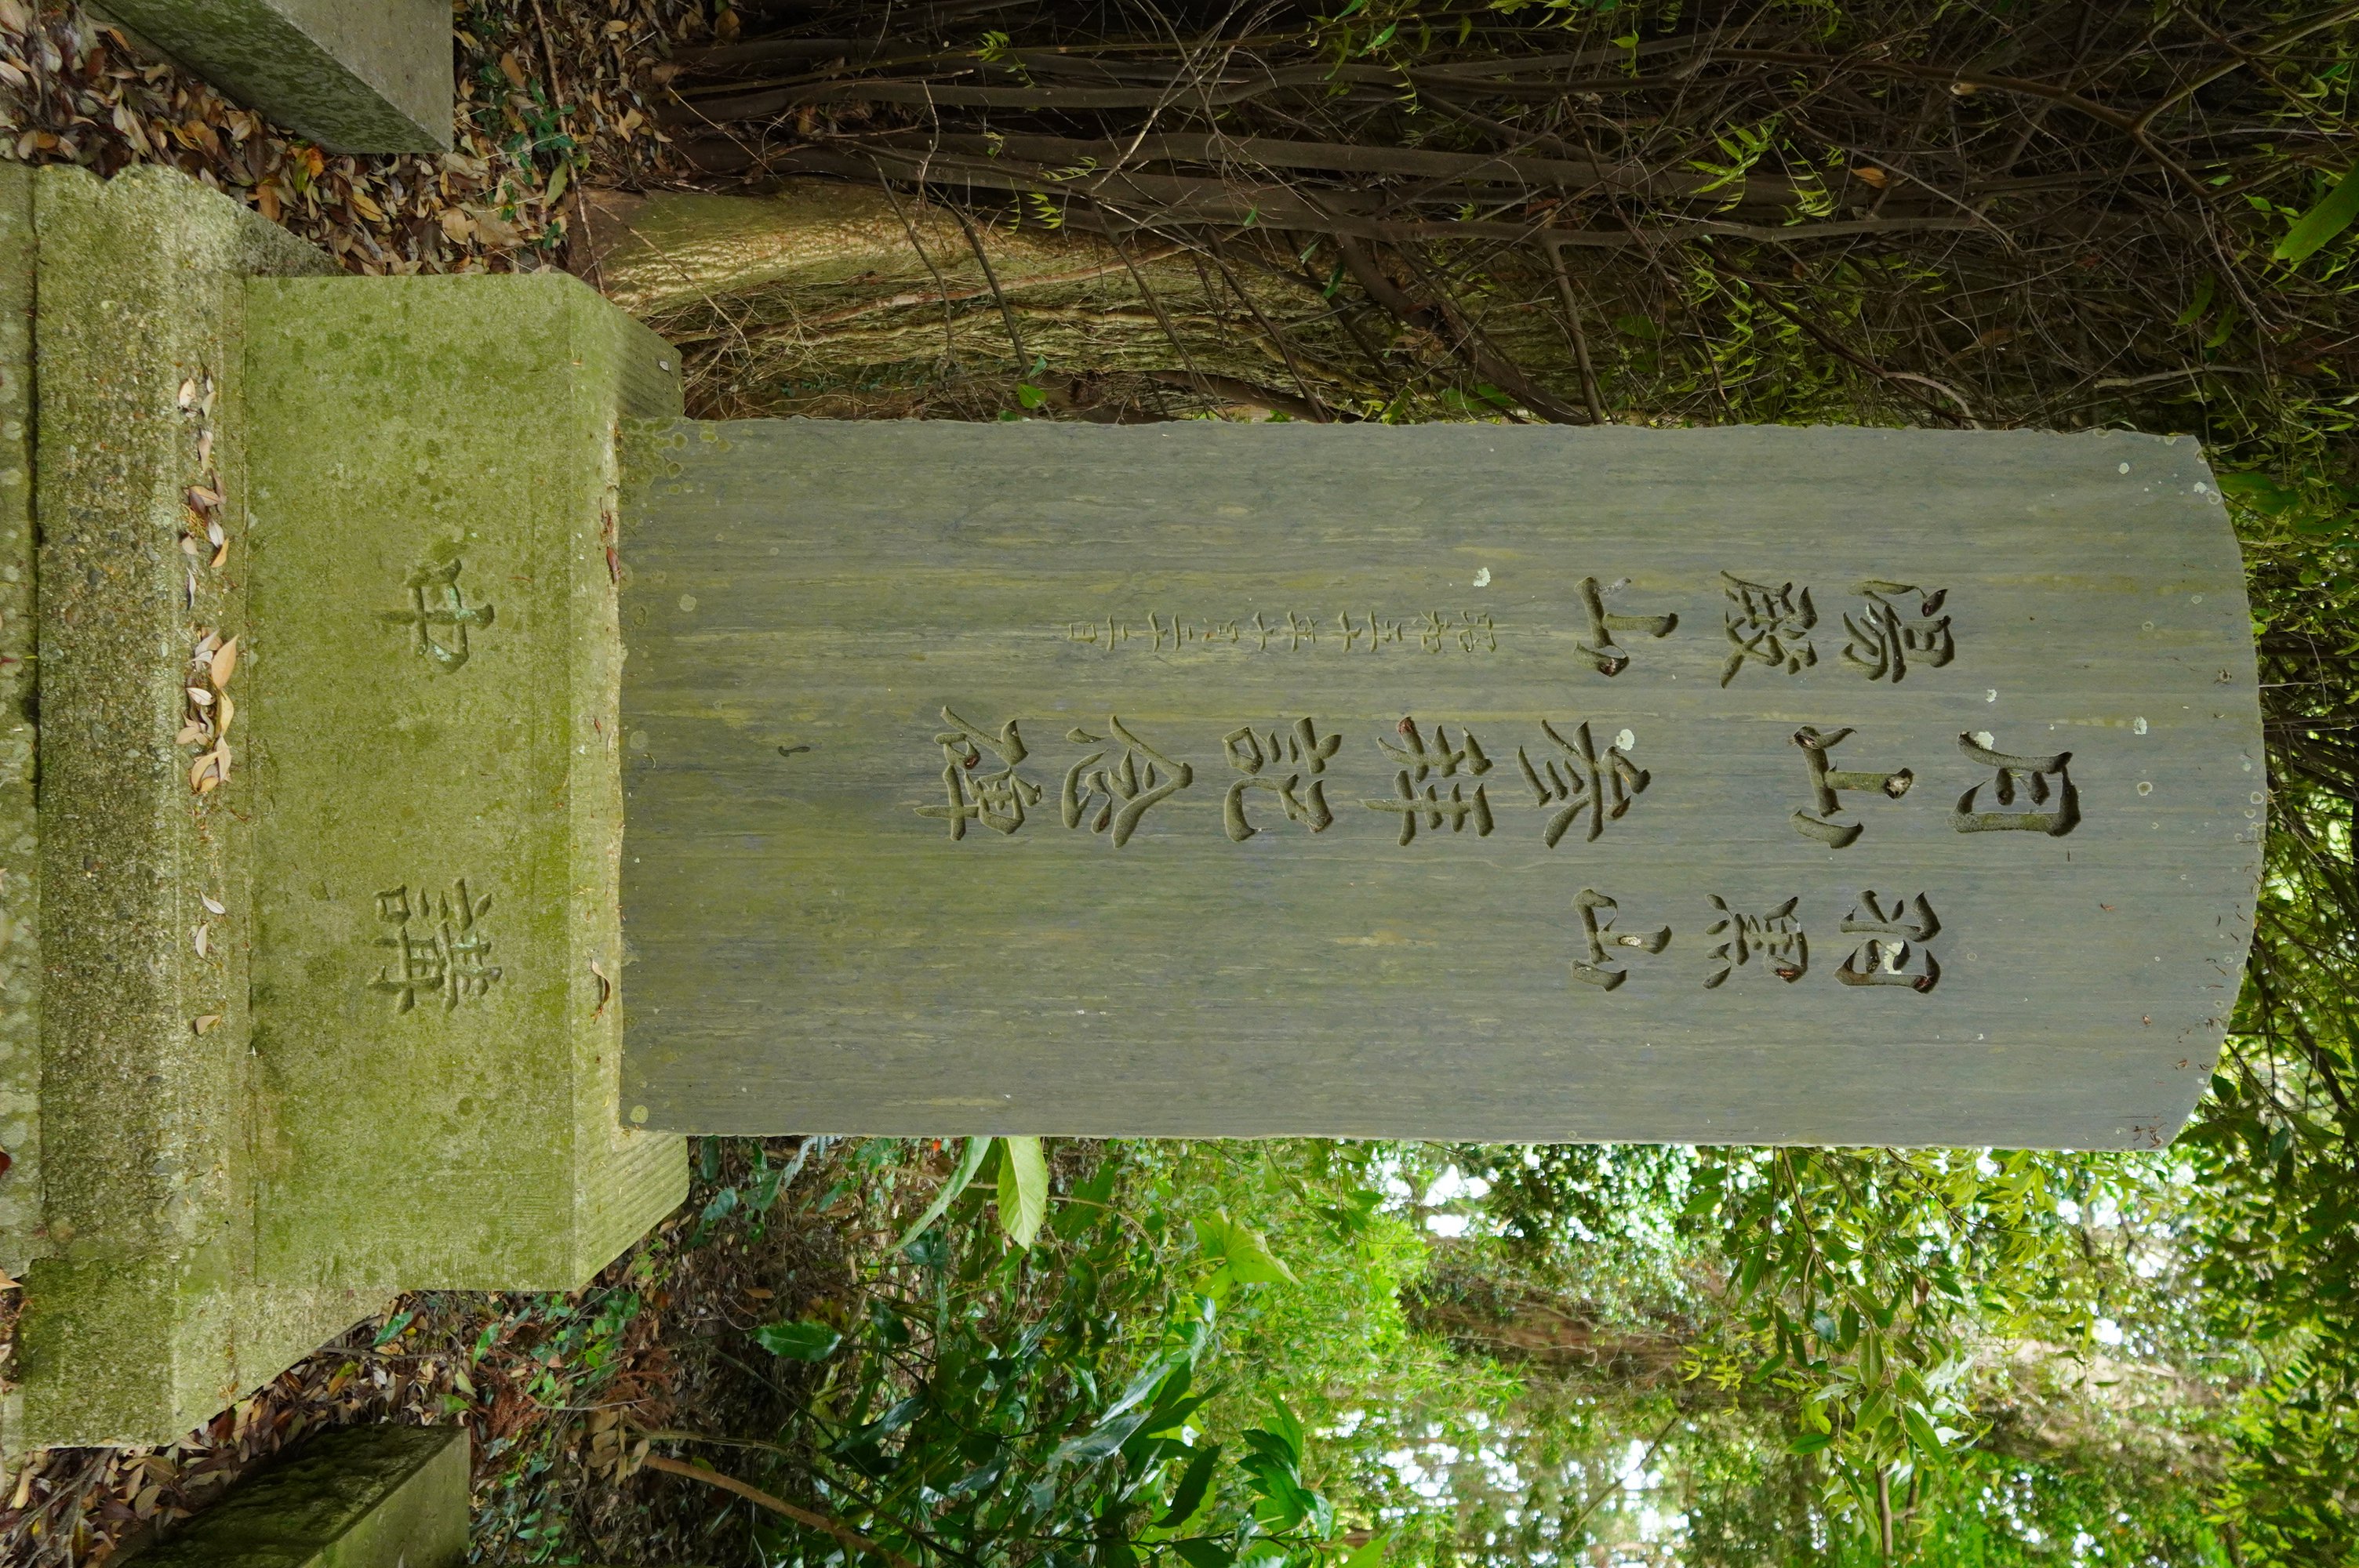 羽黒山
月山参拝記念碑
湯殿山
昭和三十年十月二十二日
講中